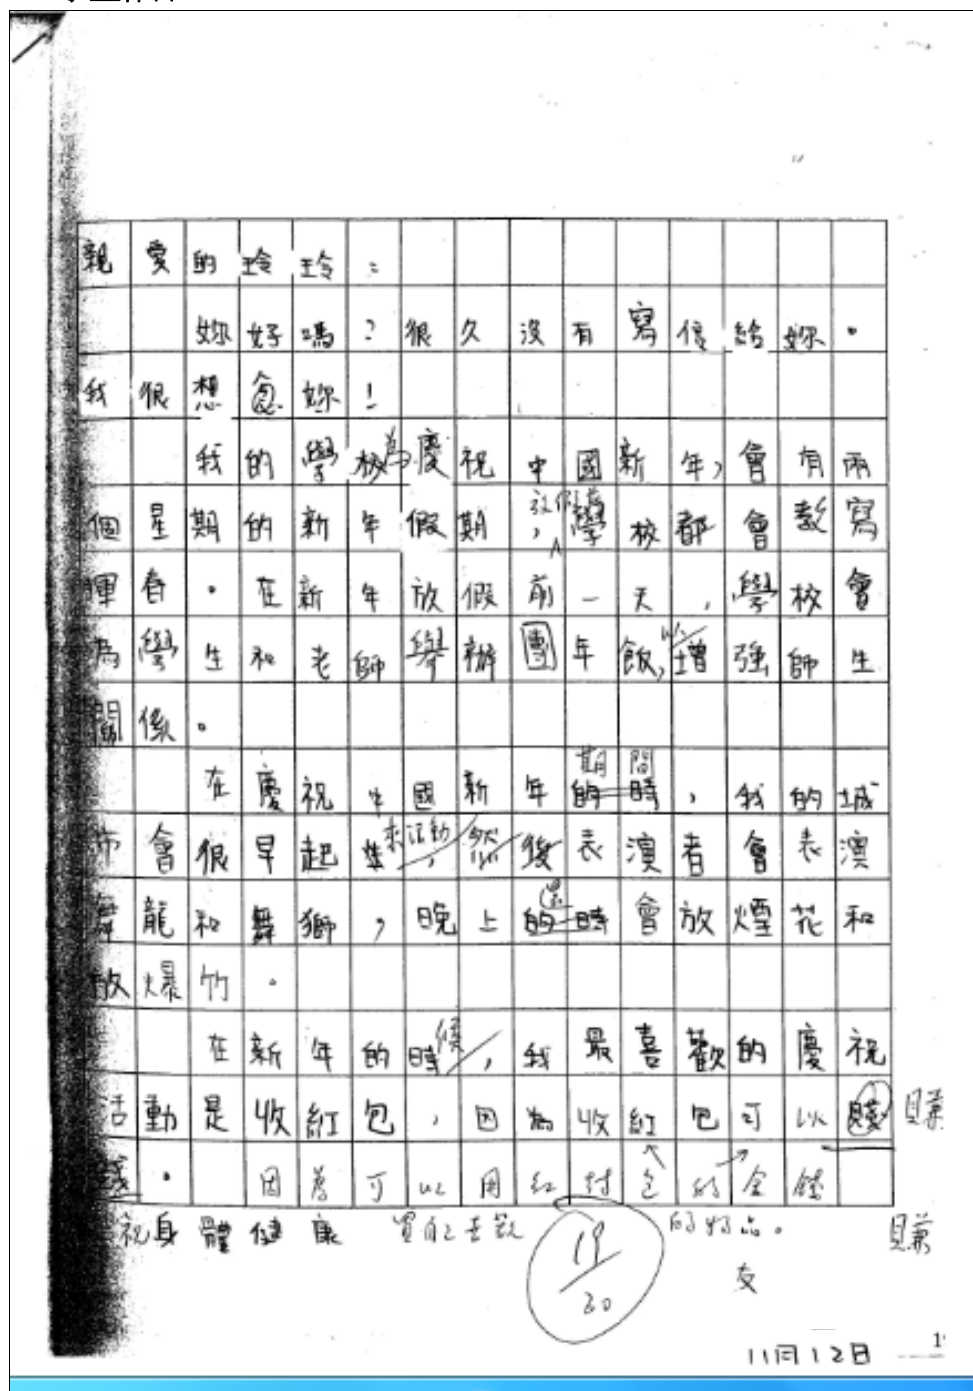 親愛的玲玲：
妳好嗎？很久沒有寫信給妳。
我很想念妳！
為
我的學校慶祝中國新年，會有兩
放假前
個星期的新年假期，學校都會教寫
揮春。在新年放假前一天，學校會
以
為學生和老師舉辦團年飯，增強師生
關係。
期間
在慶祝中國新年的時，我的城
來活動 然
市會很早起，後表演者會表演
還
舞龍和舞獅，晚上的時會放煙花和
放爆竹。
候
在新年的時，我最喜歡的慶祝
活動是收紅包，因為收紅包可以賤 賺
錢。因為可以用紅封包的金錢
祝身體健康 買自己喜歡 的物品。 賺
19
20
友
11月12日